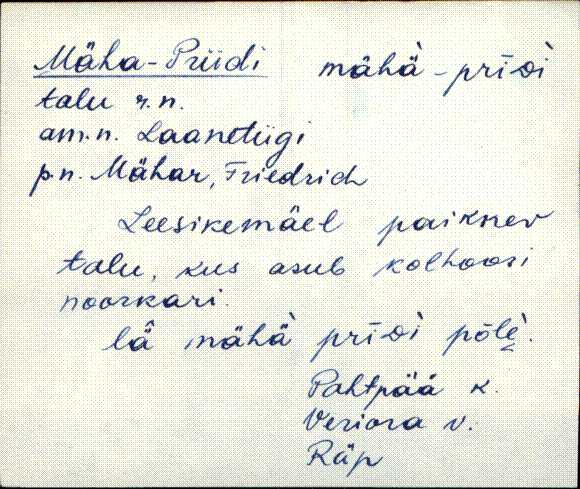 Mäha-Priidi mähä̀ - prīᴅì
talu r.n.
am.n. Laanetiigi
p.n. Mähar, Friedrich
Leesikemäel paiknev
talu, kus asub kolhoosi
noorkari.
lǟ mähä̀ prīᴅì põlè.
Pahtpää k.
Veriora v.
Räp